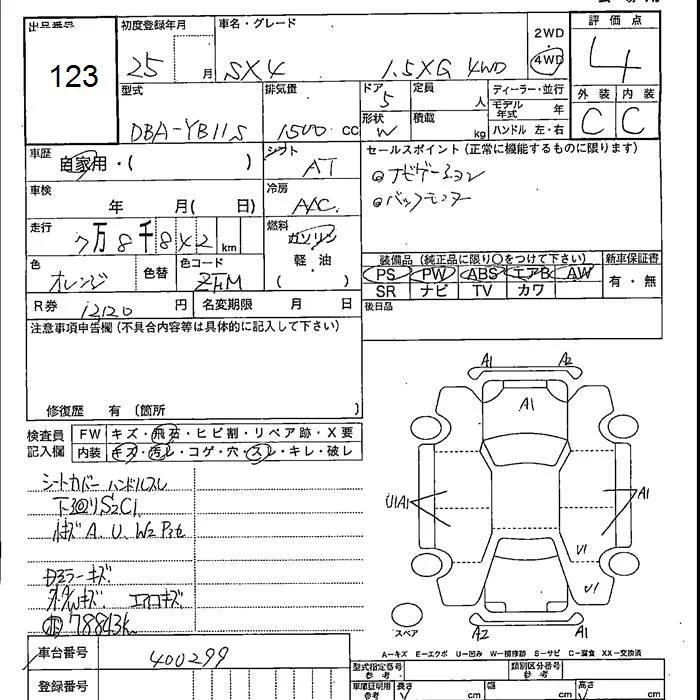 出品番号 初度登録年月 車名・グレード 評価点
123 25 月 SX4 1.5XG 4WD 2WD 4WD 4
型式 排気量 ドア 定員 ディーラー・並行 外装 内装
DBA-YB11S 1500 cc 5 人 モデル年式 年 C C
形状 W 積載 kg ハンドル 左・右
車歴 自家用・( ) シフト AT セールスポイント (正常に機能するものに限ります)
車検 年 月( 日) 冷房 A/C ナビゲーション
走行 7万8千8 2 km 燃料 ガソリン 軽・油 ( )
色 オレンジ 色替 色コード 装備品 (純正品に限り○をつけて下さい) 新車保証書
PS PW ABS エアB AW 有・無
SR ナビ TV カワ
R券 12120 円 名変期限 月 日 後日品
注意事項申告欄 (不具合内容等は具体的に記入して下さい)
修復歴 有 (箇所 )
検査員 FW キズ・飛石・ヒビ割・リペア跡・X要
記入欄 内装 キズ・汚レ・コゲ・穴・スレ・キレ・破レ
シートカバー ハンドルスレ
下 リS2C1
A. U. W2
ミラーキズ
AWキズ エアロキズ
78843k
A1 A2
A1
U1A1 A1
U1
U1
A2 A1
スペア
A-キズ E-エクボ U-凹み W-補修跡 S-サビ C-腐食 XX-交換済
車台番号 400299 型式指定番号 参考 類別区分番号 参考
登録番号 車庫証明用 参考 長さ cm 幅 cm 高さ cm